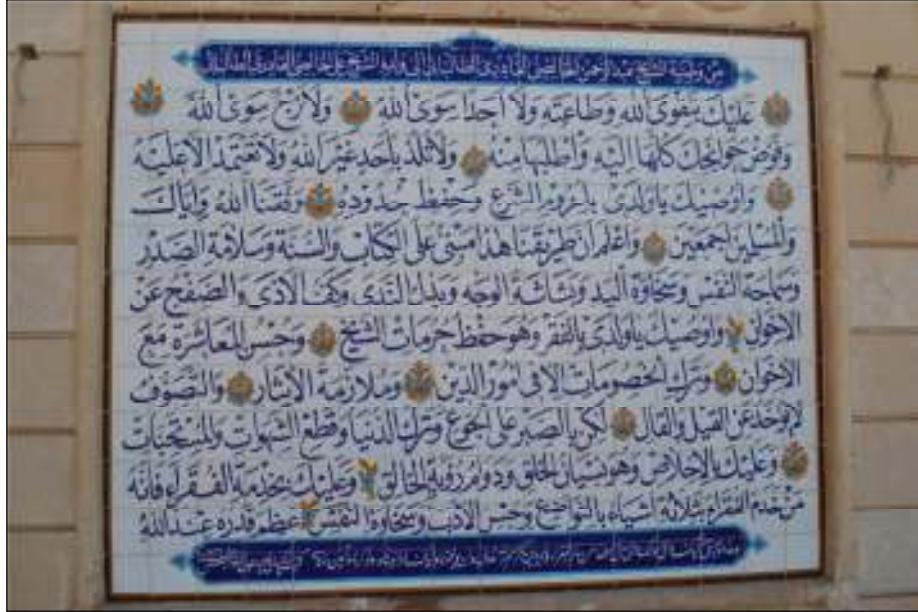 من وصية الشيخ عبد الرحمن الخالصي القادري الطالباني الى ولده الشيخ علي الخالصي القادري الطالباني
عليك بتقوى الله وطاعته ولا احدا سوى الله ولا ترج سوى الله
وفوض حوائجك كلها اليه واطلبها منه ولا تلذ بأحد غير الله ولا تعتمد الا عليه
واوصيك ياولدى بلزوم الشرع وحفظ حدوده وفقنا الله واياك
والمسلمين اجمعين واعلم ان طريقنا هذا مبنى على الكتاب والسنة وسلامة الصدر
وسماحة النفس وسخاوة اليد وبشاشة الوجه وبذل الندى وكف الاذى والصفح عن
الاخوان واوصيك ياولدى بالفقر وهو حفظ حرمات الشيخ وحسن المعاشرة مع
الاخوان وترك الخصومات الا فى امور الدين وملازمة الايثار والتصوف
لم يوخذ عن القيل والقال لكن بالصبر على الجوع وترك الدنيا وقطع الشهوات والمستحبات
وعليك بالاخلاص وهو نسيان الخلق ودوام رؤية الخالق وعليك بخدمة الفقراء فانه
من خدم الفقراء بثلاثة اشياء بالتواضع وحسن الادب وسخاوة النفس عظم قدره عند الله